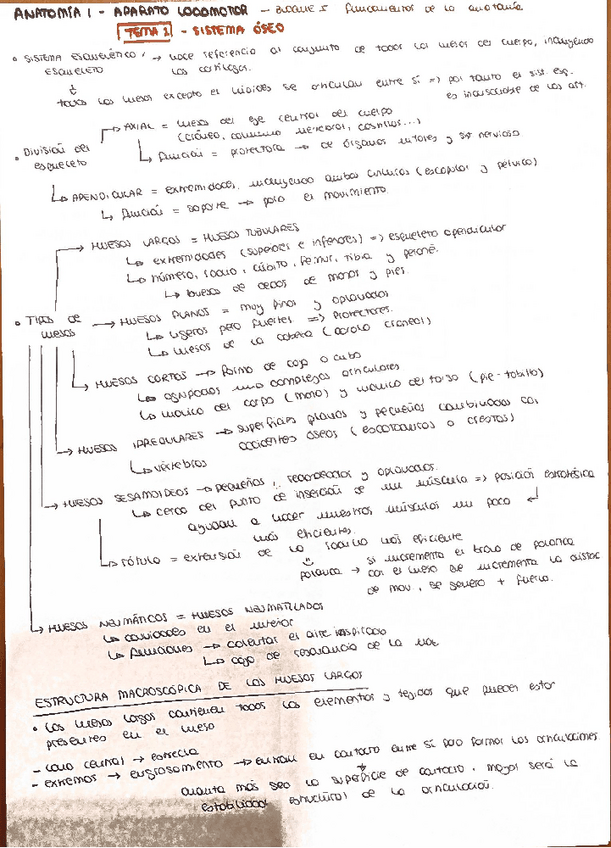 ANATOMÍA 1 - APARATO LOCOMOTOR - BLOQUE I fundamentos de la anatomía
TEMA 2 - SISTEMA ÓSEO
• SISTEMA ESQUELÉTICO / → hace referencia al conjunto de todos los huesos del cuerpo, incluyendo
ESQUELETO los cartílagos.
todos los huesos excepto el hioides se articulan entre sí => por tanto el sist. esq.
es inasociable de las art.
• División del esqueleto
→ AXIAL = huesos del eje central del cuerpo
(cráneo, columna vertebral, costillas...)
↳ función = protectora → de órganos vitales y sist nervioso
↳ APENDICULAR = extremidades, incluyendo ambas cinturas (escapular y pélvica)
↳ función = soporte → para el movimiento.
• Tipos de huesos
→ HUESOS LARGOS = HUESOS TUBULARES
↳ extremidades (superiores e inferiores) => esqueleto apendicular
↳ húmero, radio, cúbito, fémur, tibia y peroné.
↳ huesos de dedos de manos y pies.
→ HUESOS PLANOS = muy finos y aplanados
↳ ligeros pero fuertes => protectores.
↳ huesos de la cabeza (calota craneal)
↳ HUESOS CORTOS → forma de caja o cubo
↳ agrupados en complejos articulares
↳ macizo del carpo (mano) y macizo del tarso (pie-tobillo)
→ HUESOS IRREGULARES → superficies planas y pequeñas combinadas con
accidentes óseos (escotaduras o crestas)
↳ vértebras
→ HUESOS SESAMOIDEOS → pequeños, redondeados y aplanados.
↳ cerca del punto de inserción de un músculo => posición estratégica
ayudan a hacer nuestros músculos un poco
más eficientes.
↳ rótula = extensión de la rodilla más eficiente
palanca → si incrementa el brazo de palanca
con el hueso se incrementa la distac
de mov, se genera + fuerza.
↳ HUESOS NEUMÁTICOS = HUESOS NEUMATIZADOS
↳ cavidades en el interior
↳ funciones → calentar el aire inspirado
↳ caja de resonancia de la voz
ESTRUCTURA MACROSCÓPICA DE LOS HUESOS LARGOS
• Los huesos largos contienen todos los elementos y tejidos que pueden estar
presentes en el hueso
- caña central → estrecha
- extremos → engrosamiento → entran en contacto entre sí para formar las articulaciones
cuanta más sea la superficie de contacto, mayor será la
estabilidad estructural de la articulación.